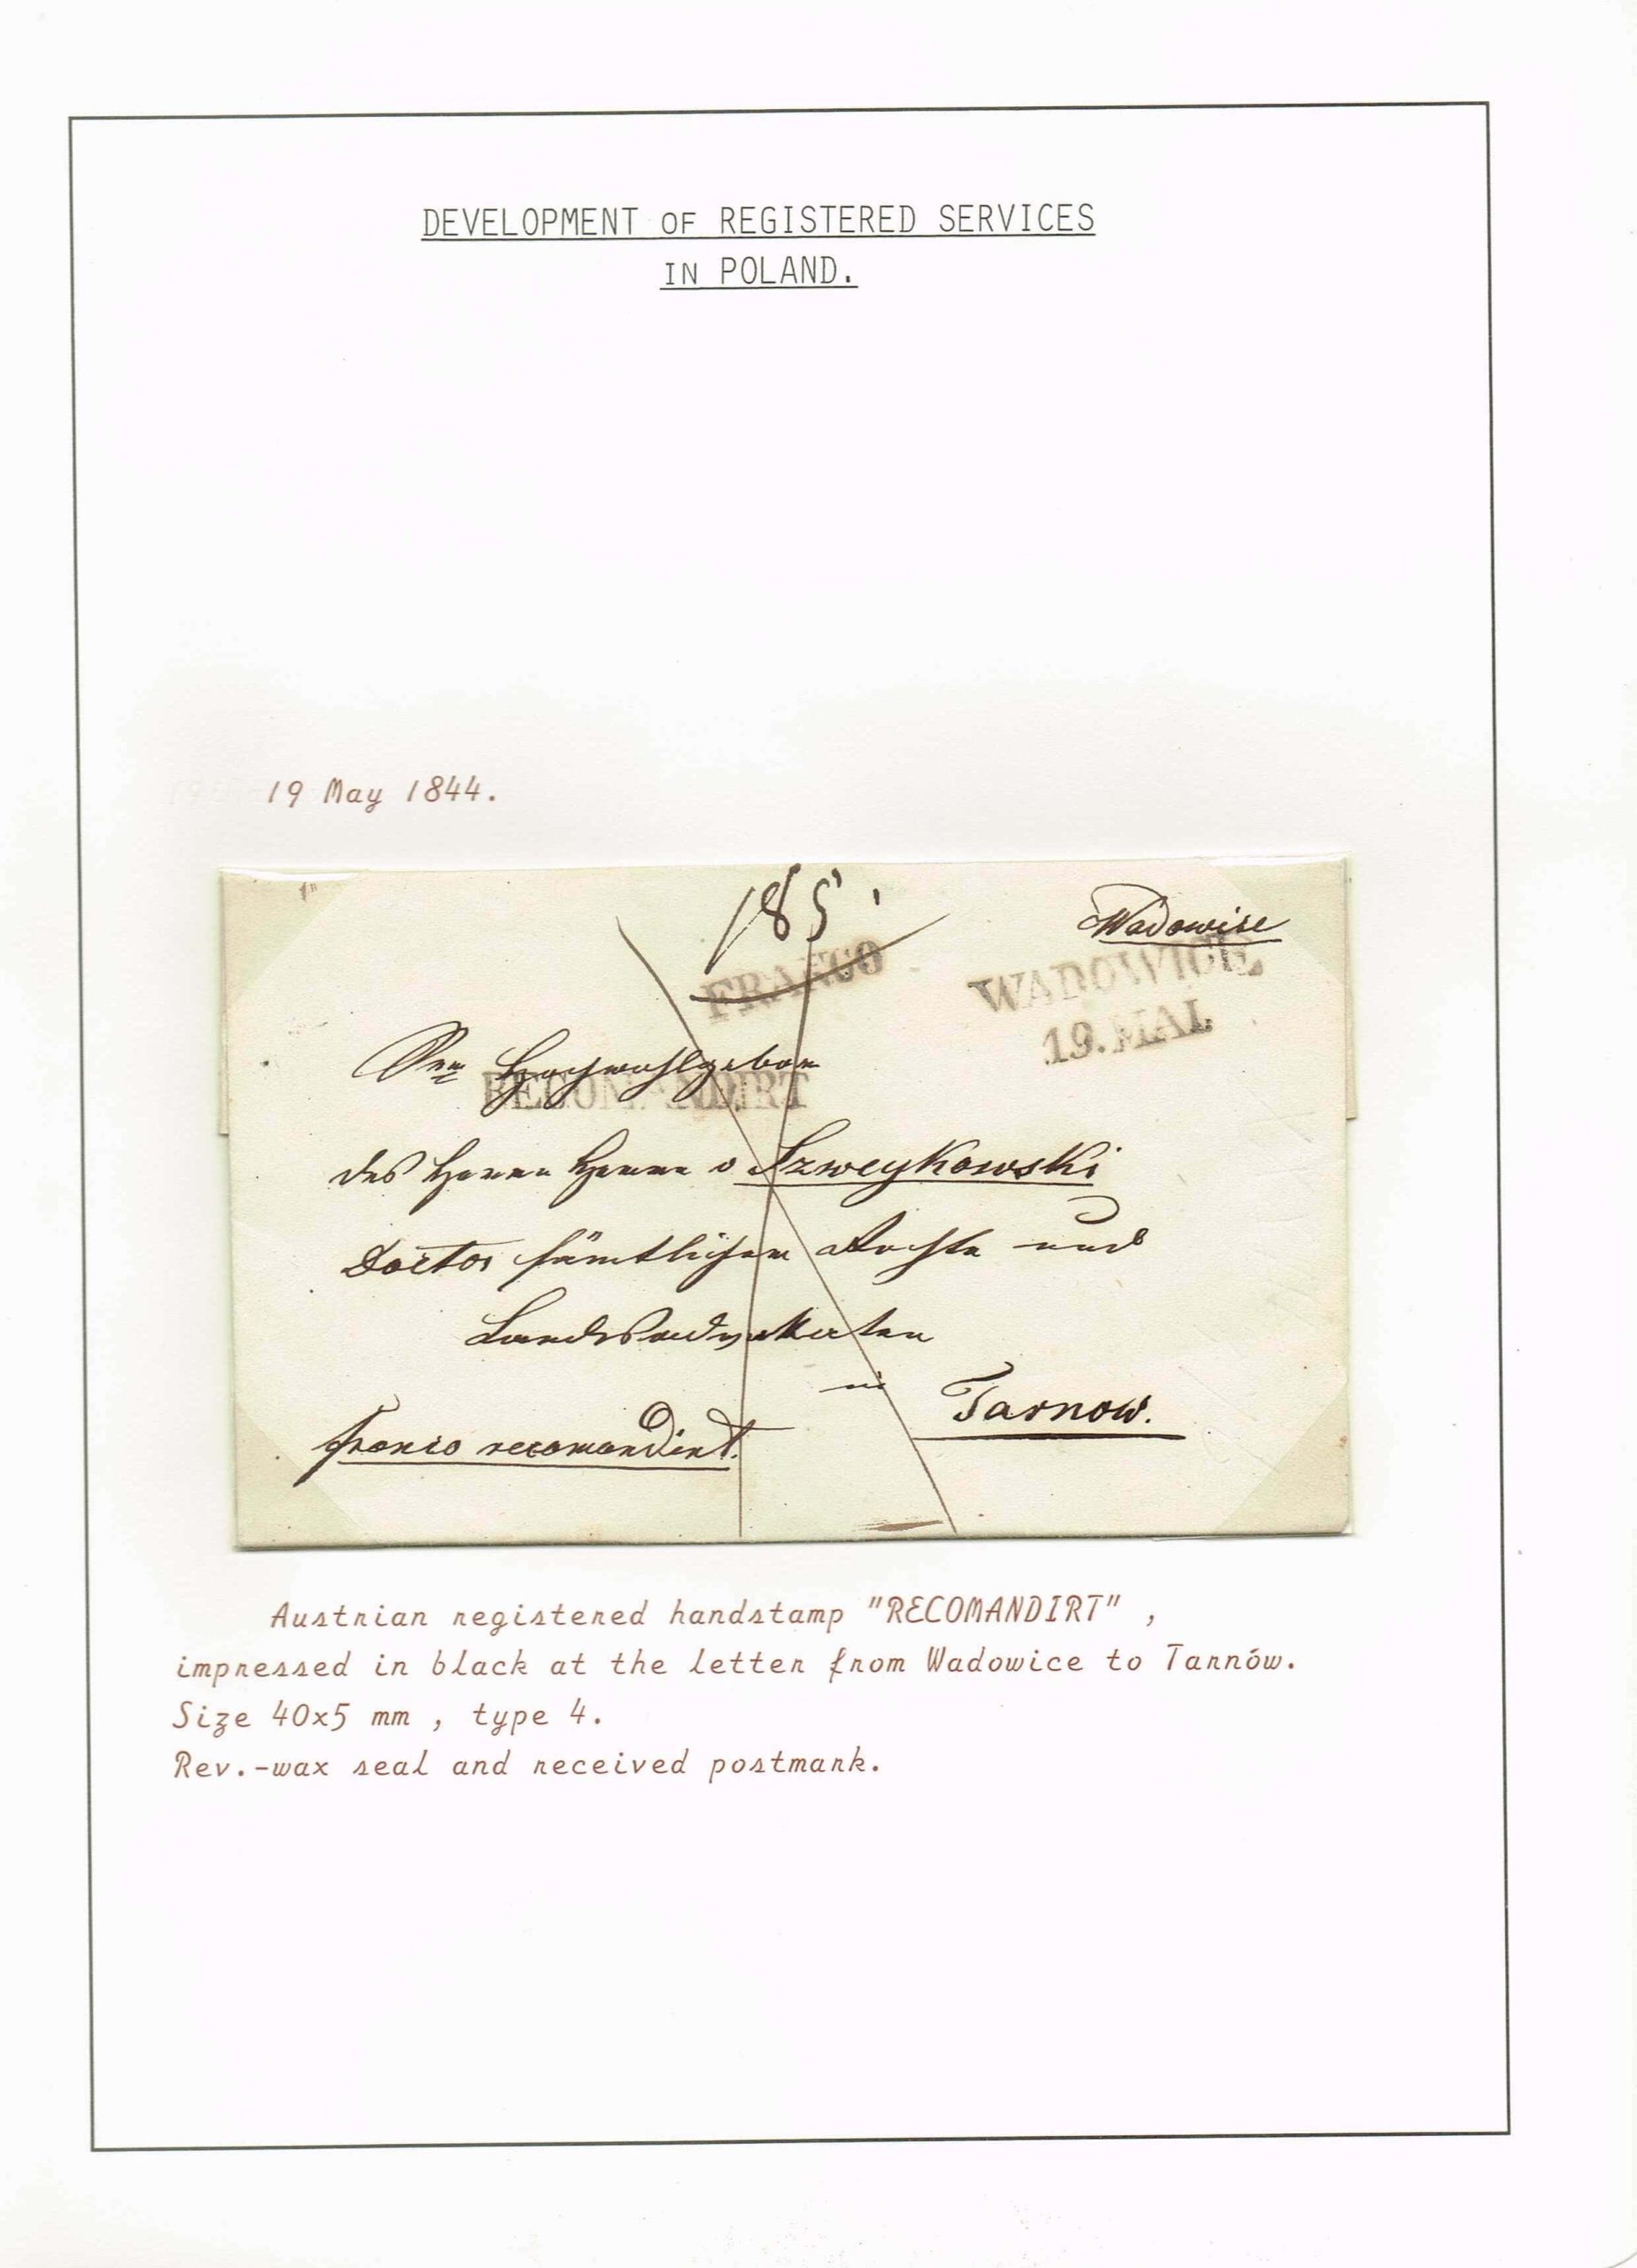 DEVELOPMENT OF REGISTERED SERVICES
IN POLAND.
19 May 1844.
185
Wadowice
FRANCO
WADOWICE
19. MAI.
Hochwohlgeborn
RECOMANDIRT
des Herrn Herrn v Szweykowski
Doctor sämtlicher Rechte und
Landesadvokaten
in Tarnow.
franco recomandirt.
Austrian registered handstamp "RECOMANDIRT" ,
impressed in black at the letter from Wadowice to Tarnów.
Size 40x5 mm , type 4.
Rev.-wax seal and received postmark.